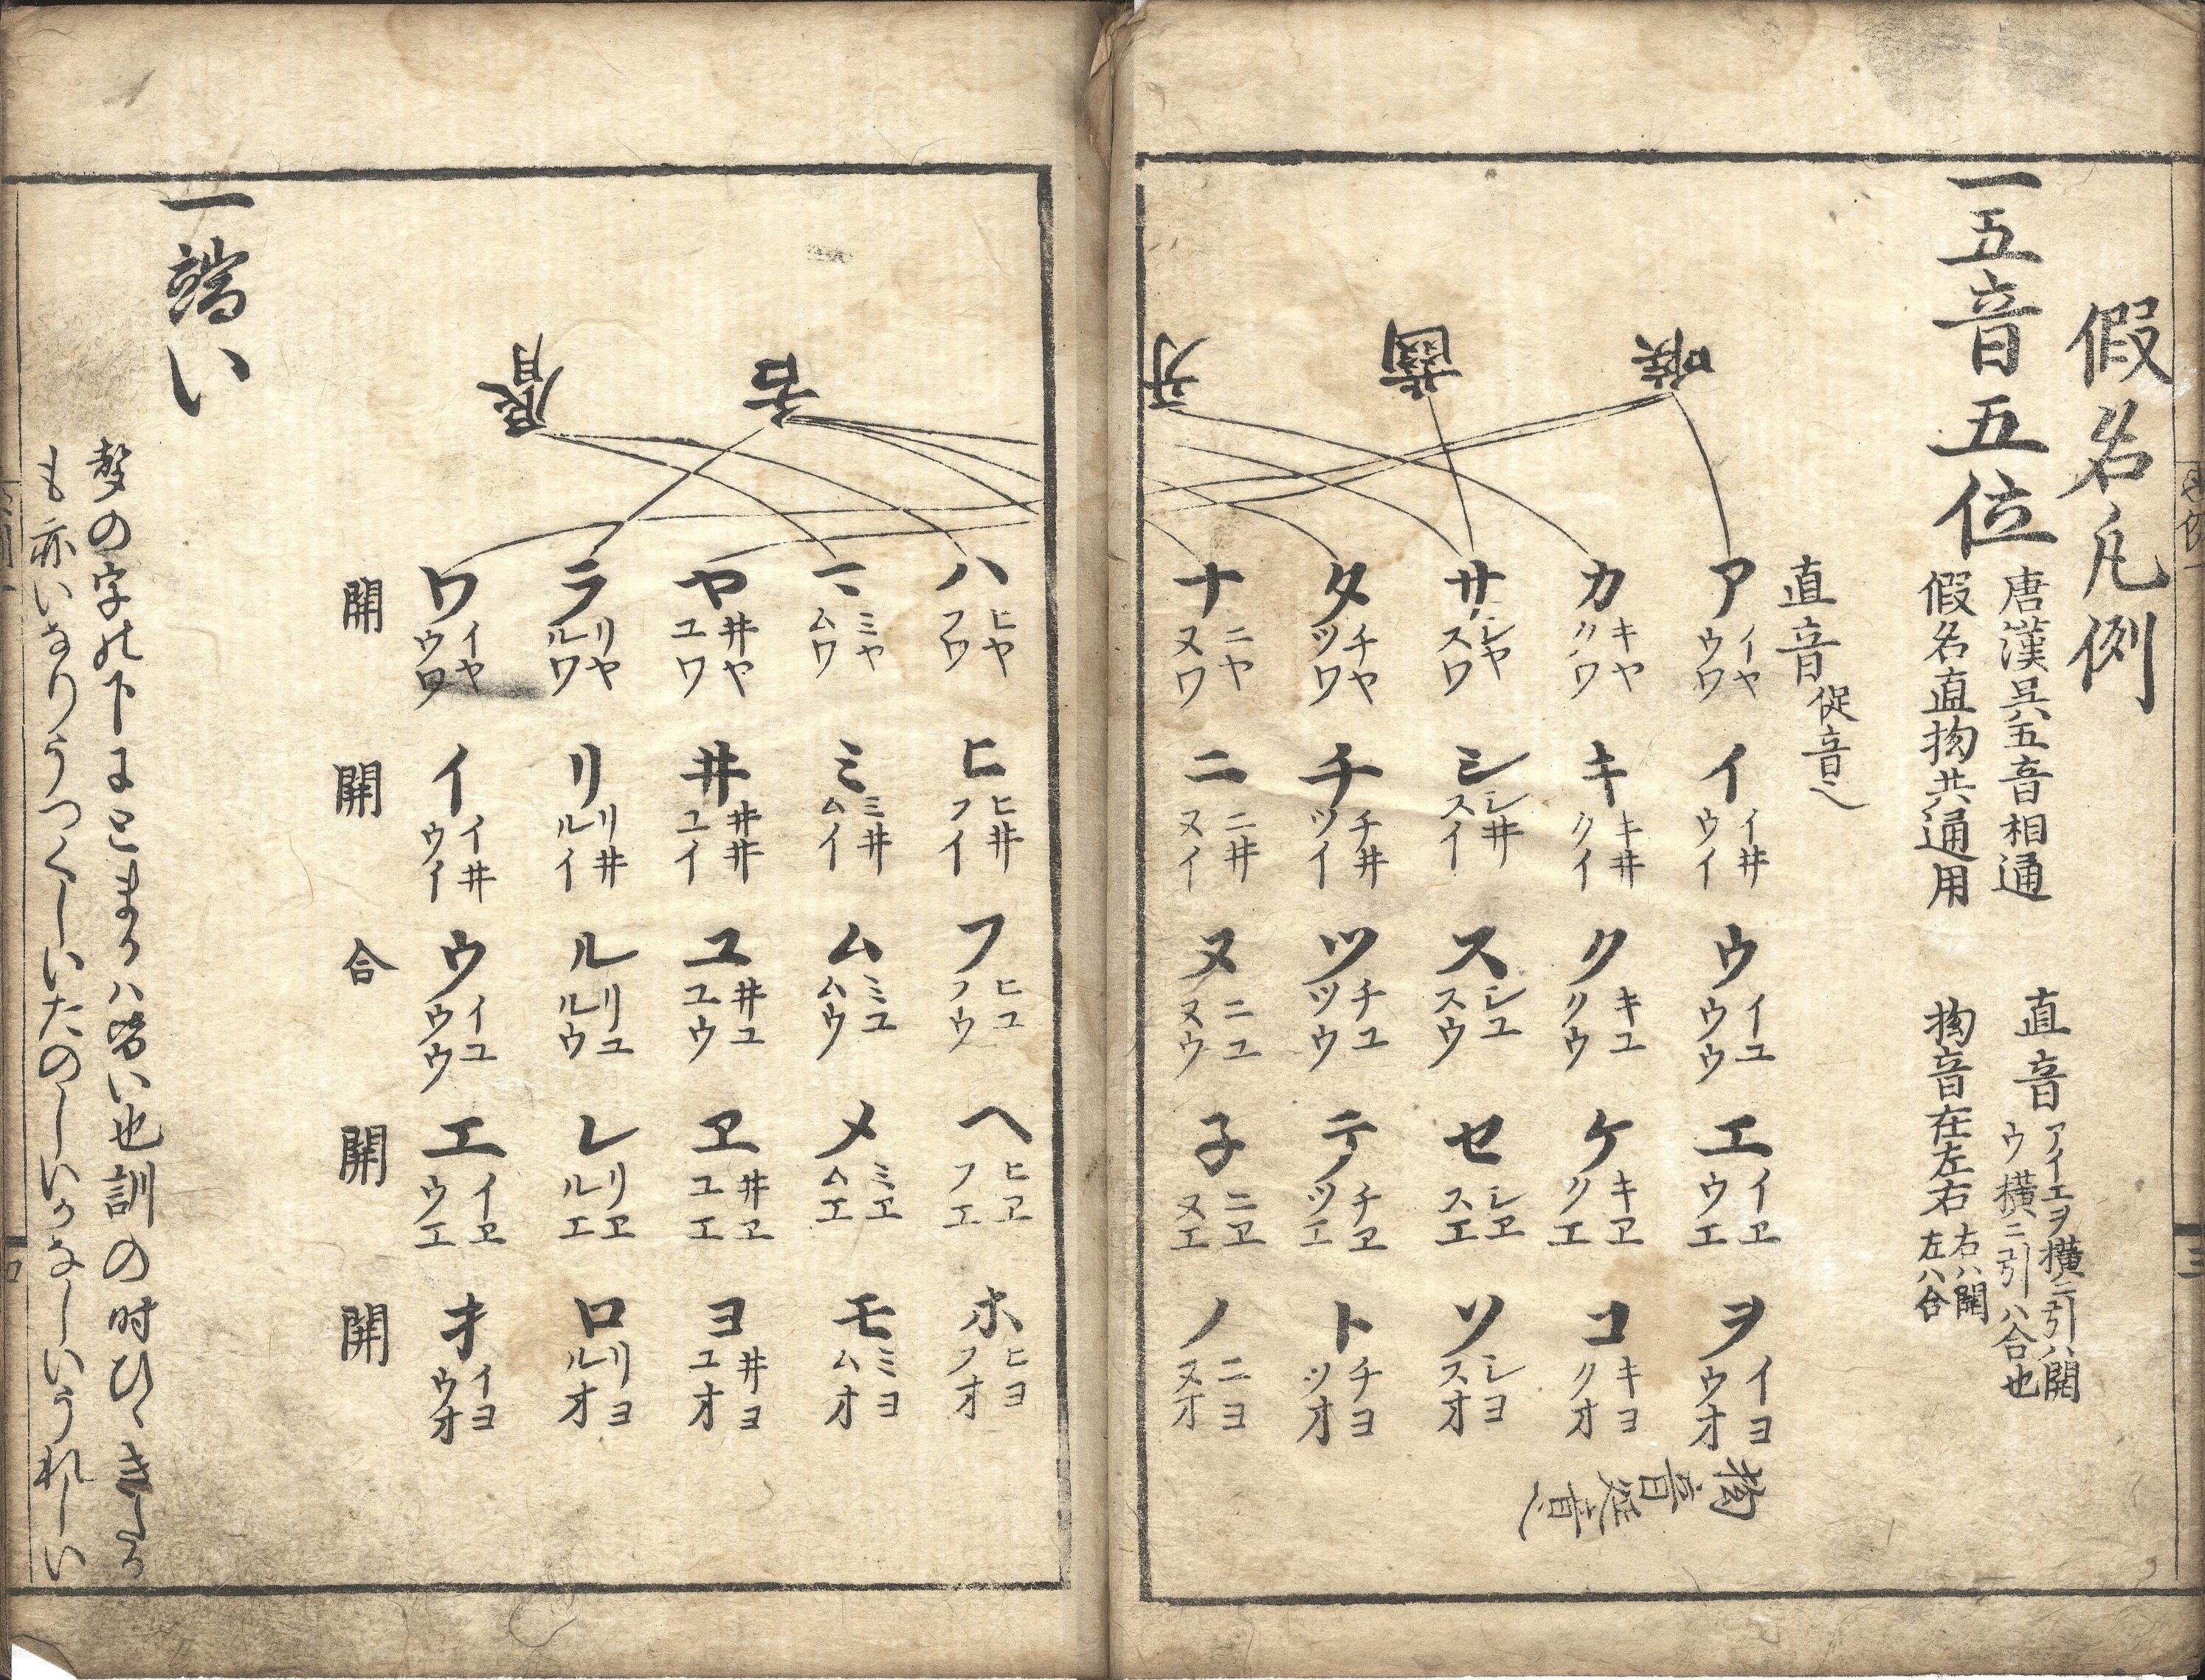 假名凡例
一五音五位
唐漢呉五音相通
假名直拘共通用
直音
アイエヲ横ニ引ハ開
ウ横ニ引ハ合也
拘音在左右
右ハ開
左ハ合
直音
促音
喉
歯
牙
舌
唇
ア イヤ ウワ
イ イ井 ウイ
ウ イユ ウウ
エ イヱ ウエ
ヲ イヨ ウオ
カ キヤ クワ
キ キ井 クイ
ク キユ クウ
ケ キヱ クエ
コ キヨ クオ
サ シヤ スワ
シ シ井 スイ
ス シユ スウ
セ シヱ スエ
ソ シヨ スオ
タ チヤ ツワ
チ チ井 ツイ
ツ チユ ツウ
テ チヱ ツエ
ト チヨ ツオ
ナ ニヤ ヌワ
ニ ニ井 ヌイ
ヌ ニユ ヌウ
子 ニヱ ヌエ
ノ ニヨ ヌオ
拘音
ハ ヒヤ フワ
ヒ ヒ井 フイ
フ ヒユ フウ
ヘ ヒヱ フエ
ホ ヒヨ フオ
マ ミヤ ムワ
ミ ミ井 ムイ
ム ミユ ムウ
メ ミヱ ムエ
モ ミヨ ムオ
ヤ 井ヤ ユワ
井 井井 ユイ
ユ 井ユ ユウ
ヱ 井ヱ ユエ
ヨ 井ヨ ユオ
ラ リヤ ルワ
リ リ井 ルイ
ル リユ ルウ
レ リヱ ルエ
ロ リヨ ルオ
ワ イヤ ウワ
イ イ井 ウイ
ウ イユ ウウ
エ イヱ ウエ
オ イヨ ウオ
開
開
合
開
開
一端い
の字の下にとまるハ皆い也訓の时ひゞき
も亦いなりうつくしいたのしいかなしいうれしい